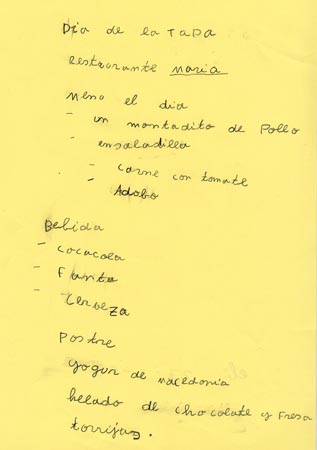 Día de la TAPA
restaurante maria
Meno el dia
- un montadito de Pollo
- ensaladilla
- carne con tomate
- Adobo
Bebida
- cocacola
- Fanta
- Cerbeza
Postre
yogur de macedonia
helado de chocolate y fresa
torrijas.